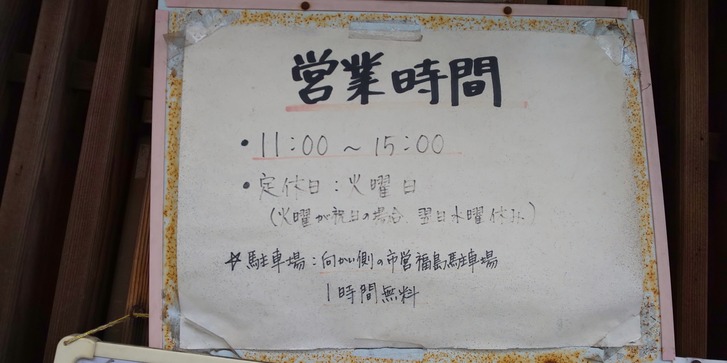 営業時間
・11:00～15:00
・定休日:火曜日
(火曜が祝日の場合、翌日水曜休み)
☆駐車場:向かい側の市営福島駐車場
1時間無料